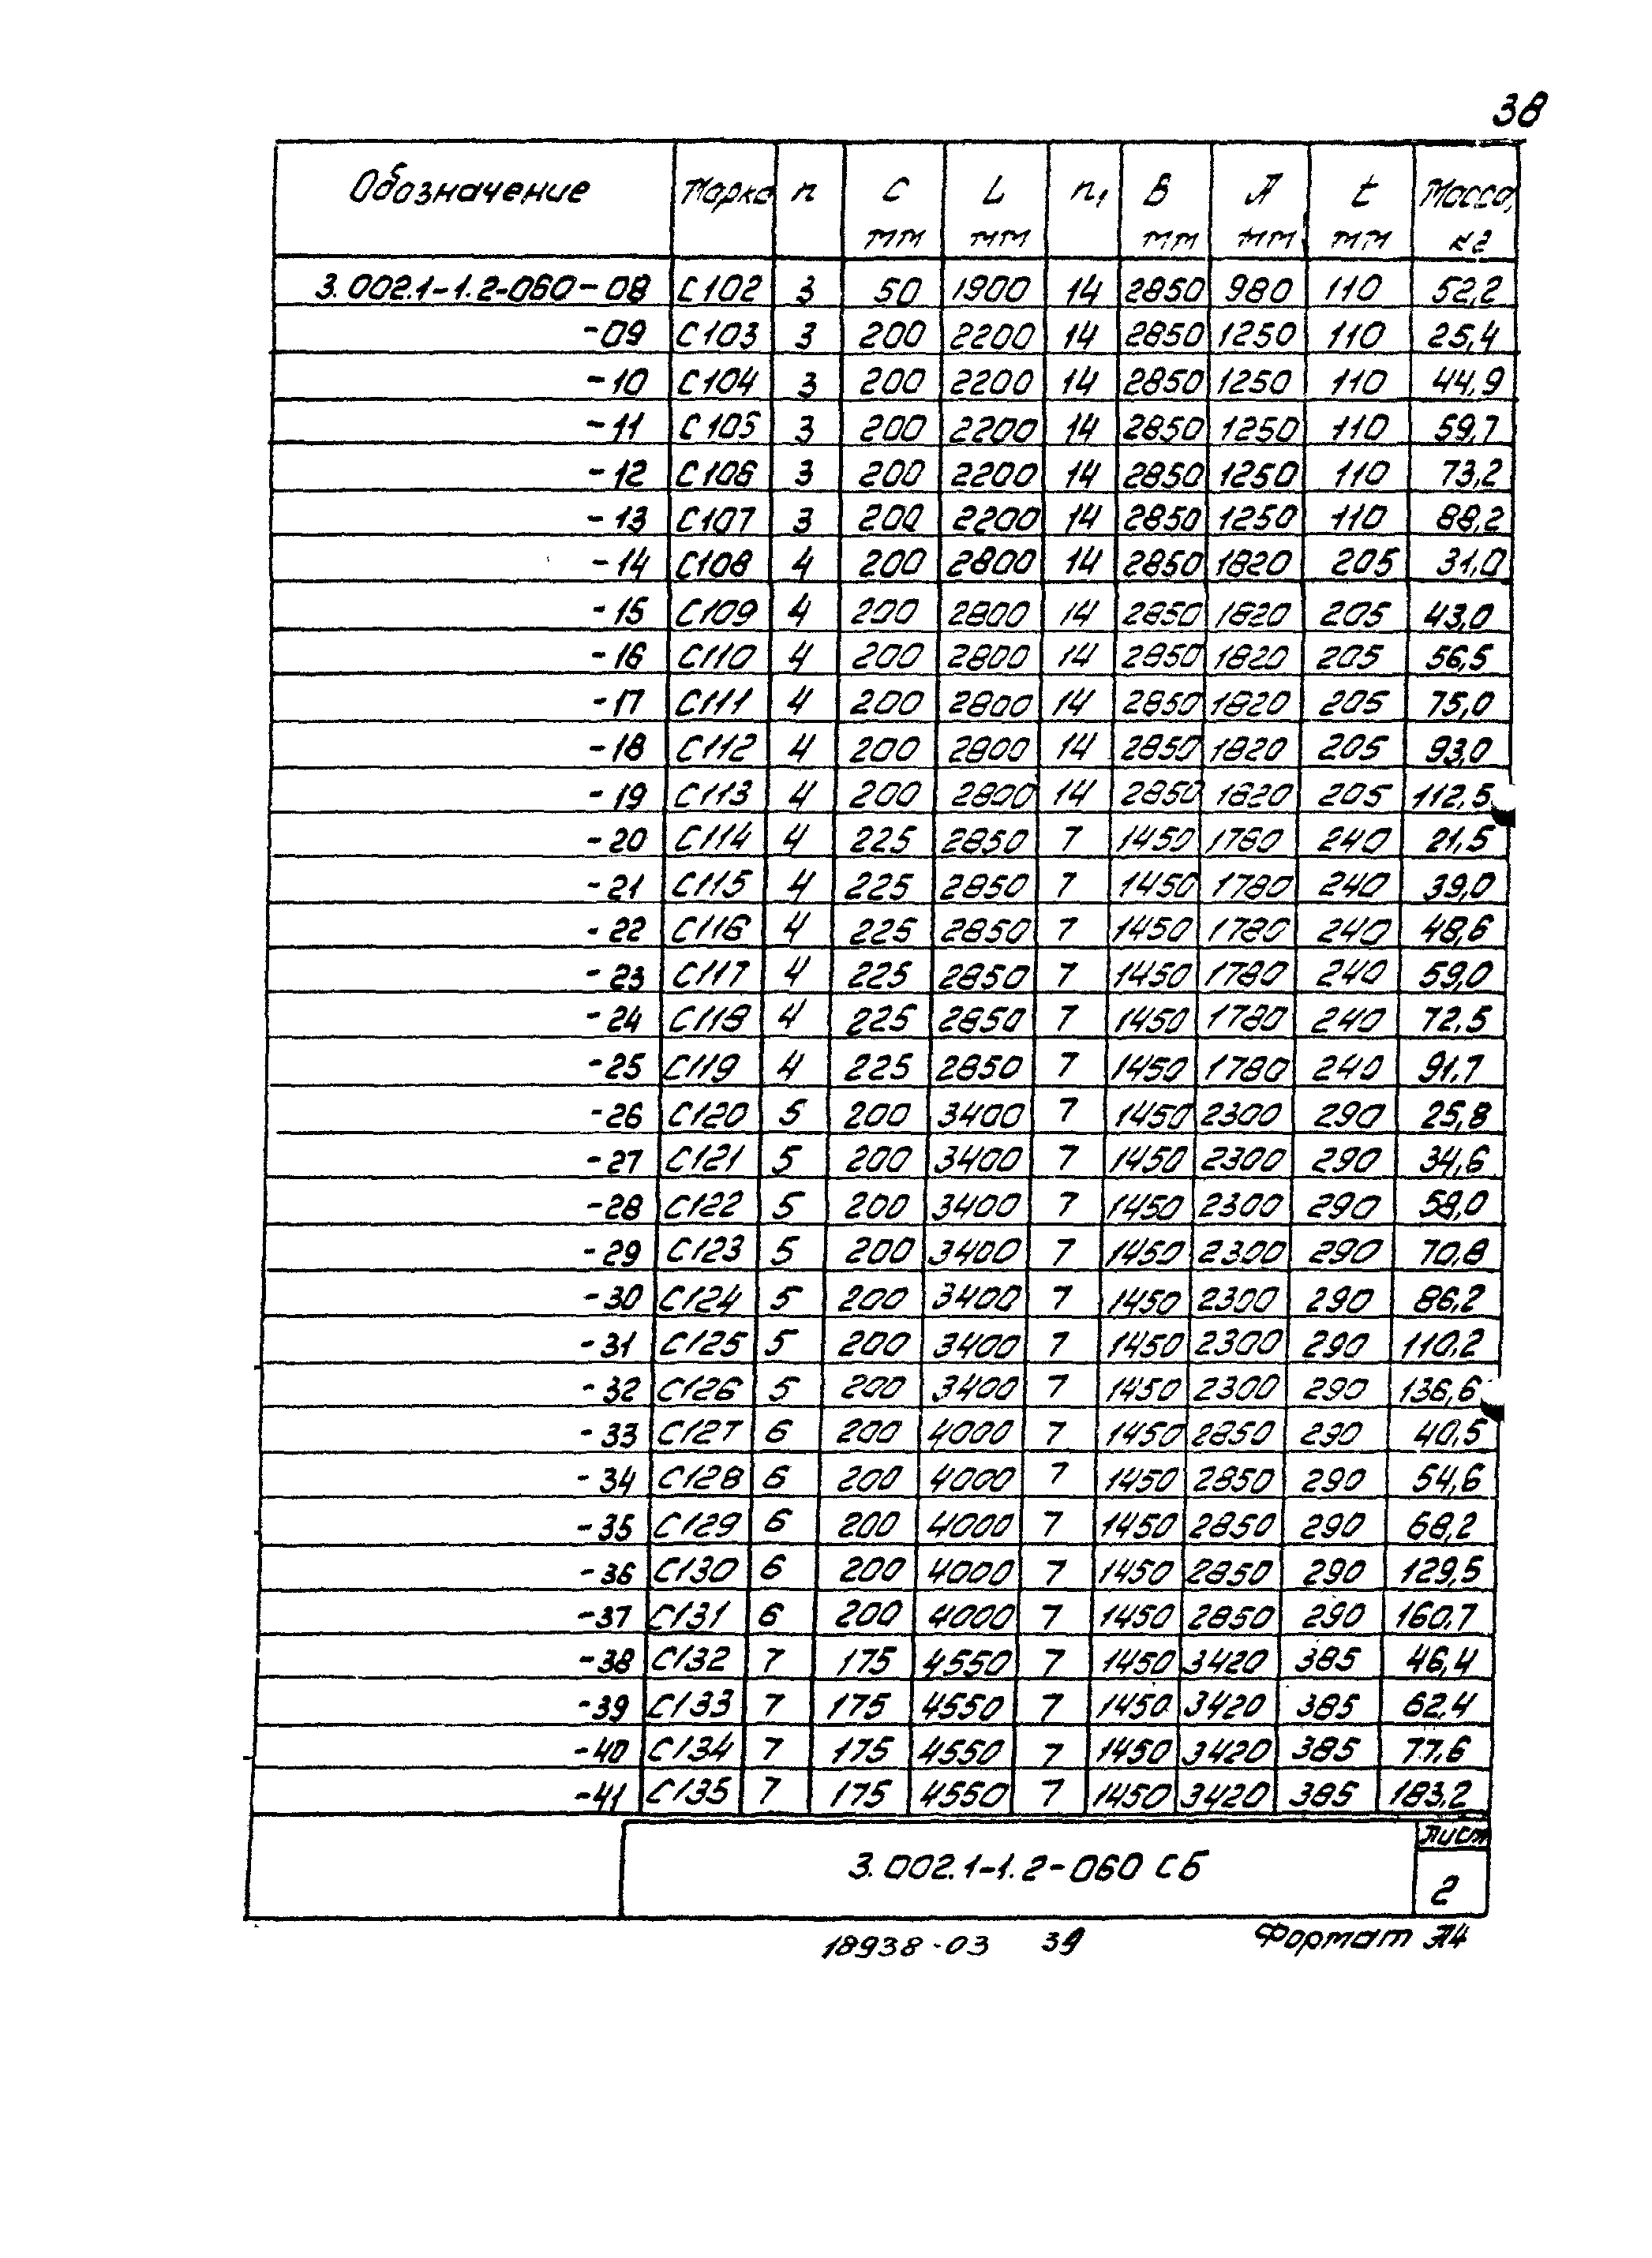 38
Обозначение Марка n C мм L мм n₁ B мм А мм t мм Масса, кг
3.002.1-1.2-060-08 С102 3 50 1900 14 2850 980 110 52,2
-09 С103 3 200 2200 14 2850 1250 110 25,4
-10 С104 3 200 2200 14 2850 1250 110 44,9
-11 С105 3 200 2200 14 2850 1250 110 59,7
-12 С106 3 200 2200 14 2850 1250 110 73,2
-13 С107 3 200 2200 14 2850 1250 110 88,2
-14 С108 4 200 2800 14 2850 1820 205 31,0
-15 С109 4 200 2800 14 2850 1820 205 43,0
-16 С110 4 200 2800 14 2850 1820 205 56,5
-17 С111 4 200 2800 14 2850 1820 205 75,0
-18 С112 4 200 2800 14 2850 1820 205 93,0
-19 С113 4 200 2800 14 2850 1820 205 112,5
-20 С114 4 225 2850 7 1450 1780 240 21,5
-21 С115 4 225 2850 7 1450 1780 240 39,0
-22 С116 4 225 2850 7 1450 1780 240 48,6
-23 С117 4 225 2850 7 1450 1780 240 59,0
-24 С118 4 225 2850 7 1450 1780 240 72,5
-25 С119 4 225 2850 7 1450 1780 240 91,7
-26 С120 5 200 3400 7 1450 2300 290 25,8
-27 С121 5 200 3400 7 1450 2300 290 34,6
-28 С122 5 200 3400 7 1450 2300 290 58,0
-29 С123 5 200 3400 7 1450 2300 290 70,8
-30 С124 5 200 3400 7 1450 2300 290 86,2
-31 С125 5 200 3400 7 1450 2300 290 110,2
-32 С126 5 200 3400 7 1450 2300 290 136,6
-33 С127 6 200 4000 7 1450 2850 290 40,5
-34 С128 6 200 4000 7 1450 2850 290 54,6
-35 С129 6 200 4000 7 1450 2850 290 68,2
-36 С130 6 200 4000 7 1450 2850 290 129,5
-37 С131 6 200 4000 7 1450 2850 290 160,7
-38 С132 7 175 4550 7 1450 3420 385 46,4
-39 С133 7 175 4550 7 1450 3420 385 62,4
-40 С134 7 175 4550 7 1450 3420 385 77,6
-41 С135 7 175 4550 7 1450 3420 385 183,2
3.002.1-1.2-060 СБ
Лист
2
18938-03 39 Формат А4